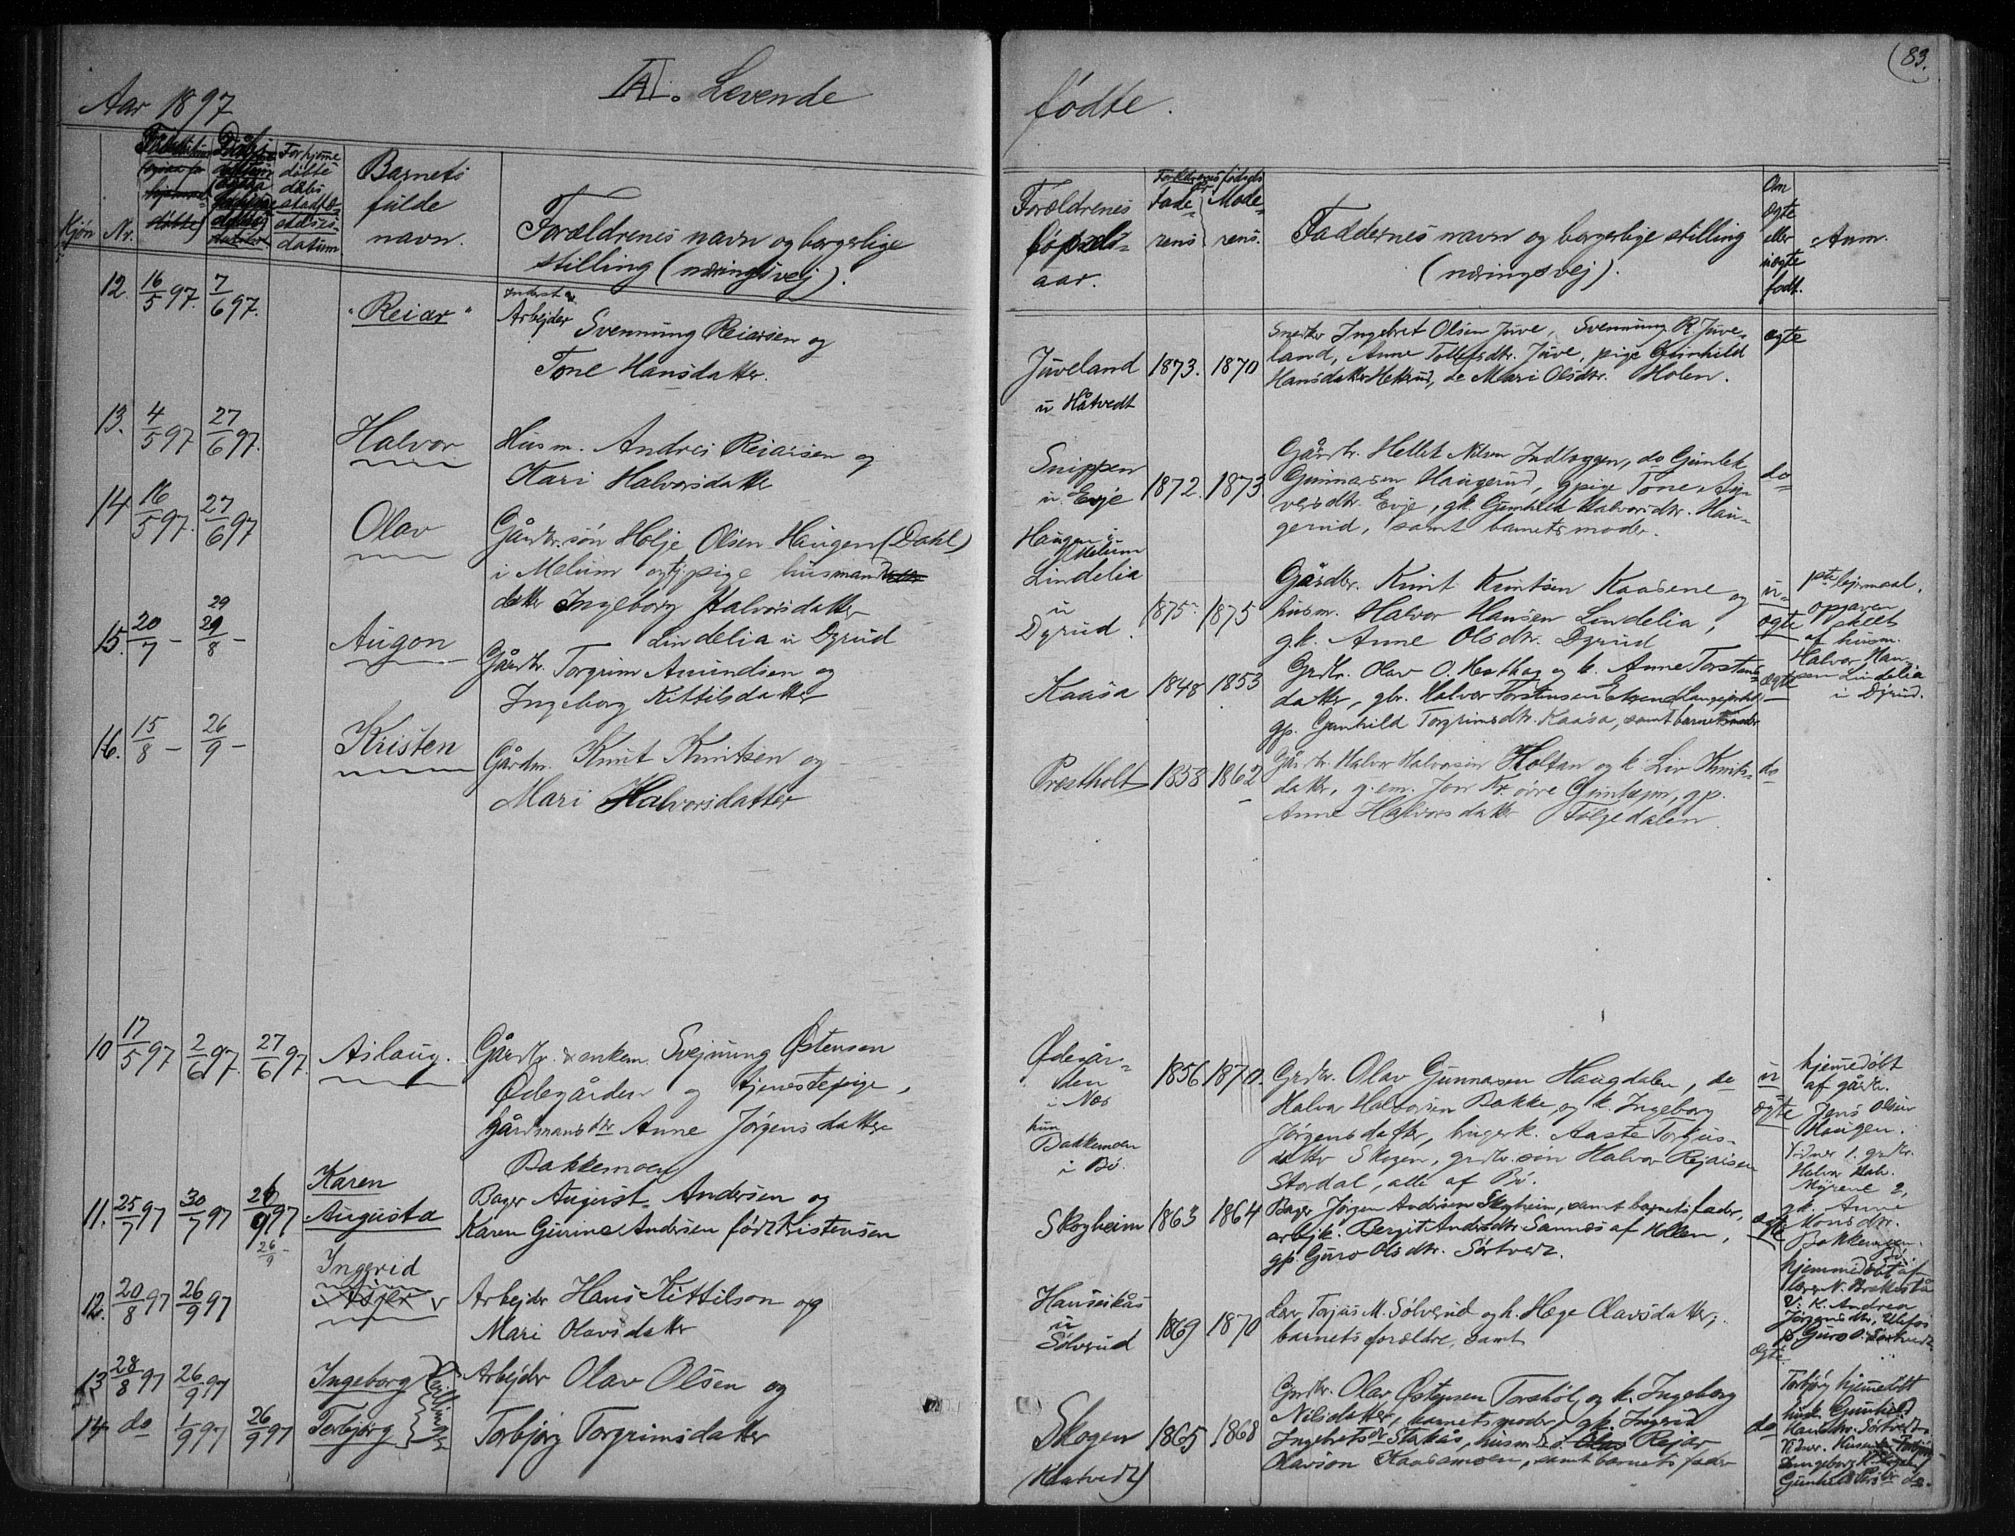 Aar 1897
IA. Levende
fødte.
83.
Kjøn
Nr.
døbte
Forhjemme
døbte
dabs
stadfæ-
stelses-
datum
Barnets
fulde
navn.
Forældrenes navn og borgerlige
stilling (næringsvej).
Forældrenes
bopæl
aar.
Forældrenes fødsels
Fade-
rens
Mode-
rens.
Faddernes navn og borgerlige stilling
(næringsvej).
Om
ægte
eller
uægte
født.
Anm.
12. 16/5 97. 7/6 97.
"Reiar"
Inderst &
Arbejder Svennung Reiersen og
Tone Hansdatter.
Juveland
u Håtvedt
1873. 1870
Snedker Ingebret Olsen Juve, Svennung R. Juve-
land, Anne Tollefsdtr. Juve, pige Gunhild
Hansdatter Hettrud, do Mari Olsdtr. Holen.
ægte
13. 4/5 97. 27/6 97.
Halvor
Husm. Andres Reiarsen og
Kari Halvorsdatter
Snippen
u. Evje
1872. 1873
Gårdbr. Hellek Nilsen Indlaggen, do Gunlek
Gunnarsen Haugerud, gpige Tone
versdtr. Evje, gk. Gunhild Halvorsdtr. Hau-
gerud, samt barnets moder.
do
14 16/5 97. 27/6 97
Olav
Gårdbr. søn Holje Olsen Haugen (Dahl)
i Melum og pige husmands
datter Ingeborg Halvorsdatter
Lindelia u Dyrud
Haugen i
Melum
Lindelia
u
Dyrud.
1875 1875
Gårdbr. Knut Knutsen Kaasene og
husm. Halvor Hansen Lindelia,
gk. Anne Olsdtr. Dyrud
u-
ægte
lejermaal.
opgaven
skeet
af husm.
Halvor Han-
sen Lindelia
u Dyrud.
15. 20/7 - 29/8 -
Augon
Gårdbr. Torgrim Amundsen og
Ingeborg Kittilsdatter
Kaasa
1848 1853
Grdbr. Olav O. Hesthag og k. Anne Torstens-
datter, gbr. Halvor Torstensen
gp. Gunhild Torgrimsdtr. Kaasa, samt barnets moder
ægte
16. 15/8 - 26/9 -
Kristen
Gårdm. Knut Knutsen og
Mari Halvorsdatter
Prestholt
1858 1862
Gårdbr. Halvor Halvorsøn Holtan og k. Liv Knuts-
datter, g.em. Jon Kr. øvre Gunheim, gp.
Anne Halvorsdatter Følgedalen.
do
10 17/5 97 2/6 97. 27/6 97.
Aslaug.
Gårdbr. & enkem. Svejnung Østensen
Ødegården og tjenestepige,
gårdmansdtr Anne Jørgensdatter
Bakkemoen
Ødegår-
den
i Næs
hun
Bakkemoen
i Bø.
1856 1870.
Grdbr. Olav Gunnarsen Haugdalen, do
Halvor Halvorsen Bakke, og k. Ingeborg
Jørgensdatter, brugerk. Aaste Torkjus-
datter Skogen, grdbr. søn Halvor Rejarsen
Stordal, alle af Bø.
u
ægte
hjemmedøbt
af gårdbr.
Jens Olsen
Haugen.
Vidner 1. grdbr.
Halvor Halv.
Myrene 2,
gk. Anne
Monsdtr.
Bakkemoen.
11. 25/7 97 30/7 97 26/9 97
26/9 -
Karen
Augusta
Bager August Andersen og
Karen Gurine Andersen født Kristensen
Skogheim
1863 1864
Bager Jørgen Andersen Skogheim, samt barnets fader,
arbejk. Bergit Andersdtr Sannæs af Hollen,
gp. Guro Olsdtr. Sørtvedt.
ægte
hjemmedøbt af
lærer N.
V: k. Andrea
Jørgensdtr. Ulefos
p Guro O. Sørtvedt
12. 20/8 97 26/9 97
Ingerid
Arbejder Hans Kittilson og
Mari Olavsdatter
Hauseikås
u
Sølverud
1869 1870
Lær. Torjus M. Sølverud og h. Hæge Olavsdatter;
barnets forældre, samt
ægte
13 28/8 97 26/9 97
Ingeborg
Tvillinger
Arbejder Olav Olsen og
14 do 1/9 97 26/9 97
Torbjørg
Torbjørg Torgrimsdatter
Skogen
(Hæatvedt)
1865 1868
Grdbr. Olav Østensen Torshol, og k. Ingeborg
Nilsdatter, barnets moder, gk. Ingerid
Ingebretsdtr Stakås, husmd Rejar
Olavson Kaasamoen, samt barnets fader
do
Torbjørg hjemmedøbt
husk. Gunhild
Hansdtr. Sørtvedt
Gunhild